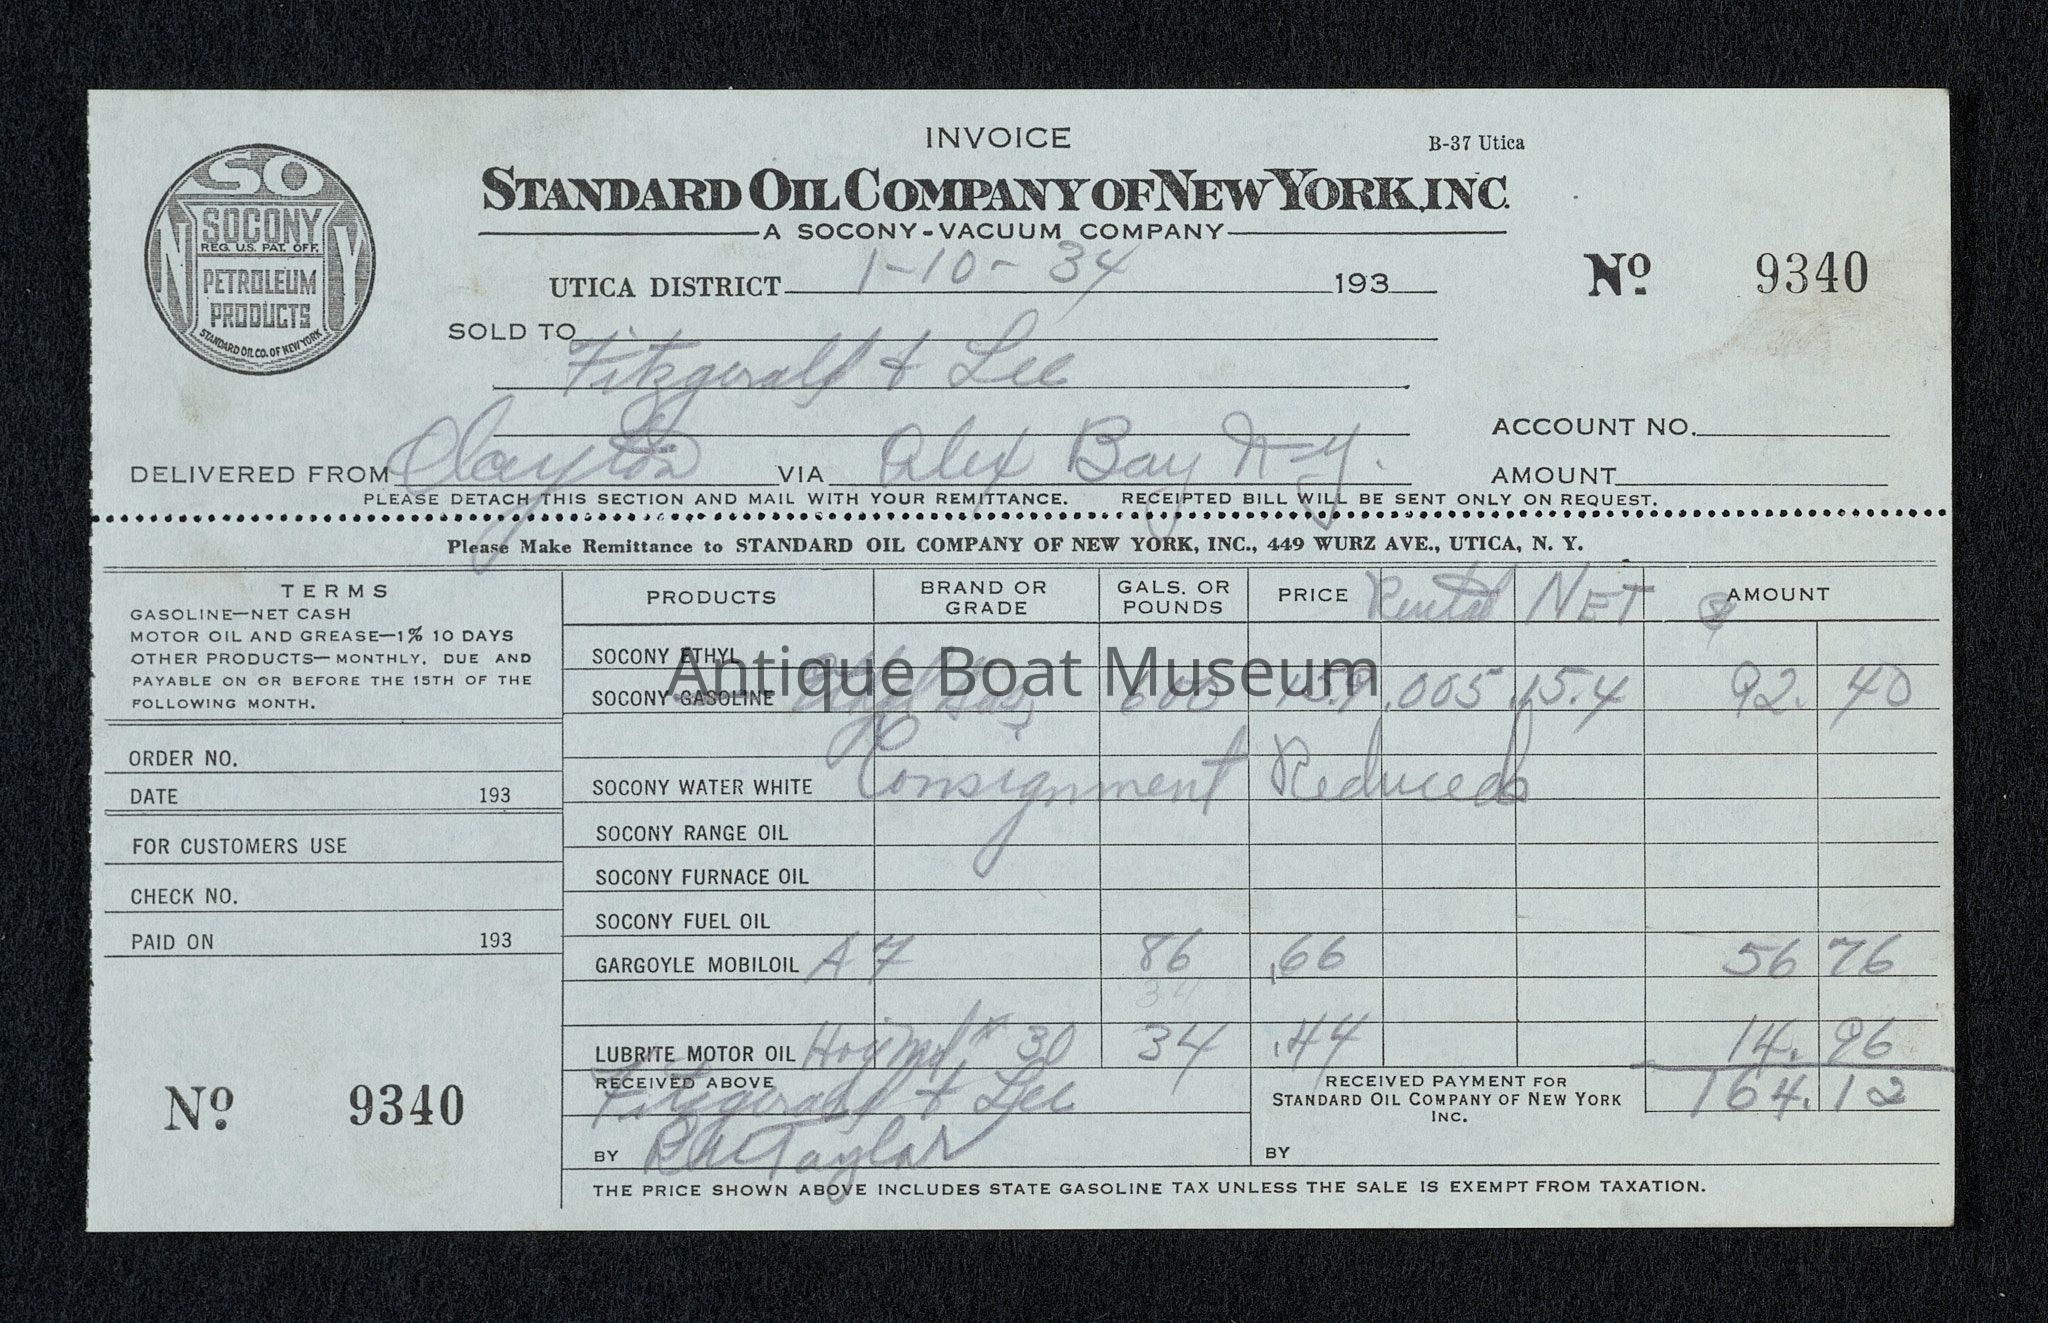 INVOICE
B-37 Utica
STANDARD OIL COMPANY OF NEW YORK, INC.
A SOCONY-VACUUM COMPANY
SO
N Y
SOCONY
REG. U.S. PAT. OFF.
PETROLEUM
PRODUCTS
STANDARD OIL CO. OF NEW YORK
UTICA DISTRICT 1-10-34 193
No 9340
SOLD TO
Fitzgerald & Lee
ACCOUNT NO.
DELIVERED FROM Clayton VIA Alex Bay N-Y.
AMOUNT
PLEASE DETACH THIS SECTION AND MAIL WITH YOUR REMITTANCE. RECEIPTED BILL WILL BE SENT ONLY ON REQUEST.
Please Make Remittance to STANDARD OIL COMPANY OF NEW YORK, INC., 449 WURZ AVE., UTICA, N. Y.
TERMS
GASOLINE—NET CASH
MOTOR OIL AND GREASE—1% 10 DAYS
OTHER PRODUCTS—MONTHLY, DUE AND
PAYABLE ON OR BEFORE THE 15TH OF THE
FOLLOWING MONTH.
ORDER NO.
DATE 193
FOR CUSTOMERS USE
CHECK NO.
PAID ON 193
No 9340
PRODUCTS BRAND OR GRADE GALS. OR POUNDS PRICE Rental NET $ AMOUNT
SOCONY ETHYL
SOCONY GASOLINE 600 15.9 .005 15.4 92. 40
SOCONY WATER WHITE Consignment Reduced
SOCONY RANGE OIL
SOCONY FURNACE OIL
SOCONY FUEL OIL
GARGOYLE MOBILOIL A 7 86 .66 56 76
34
LUBRITE MOTOR OIL # 30 34 .44 14. 96
164. 12
RECEIVED ABOVE
Fitzgerald & Lee
BY Taylor
RECEIVED PAYMENT FOR
STANDARD OIL COMPANY OF NEW YORK
INC.
BY
THE PRICE SHOWN ABOVE INCLUDES STATE GASOLINE TAX UNLESS THE SALE IS EXEMPT FROM TAXATION.
Antique Boat Museum